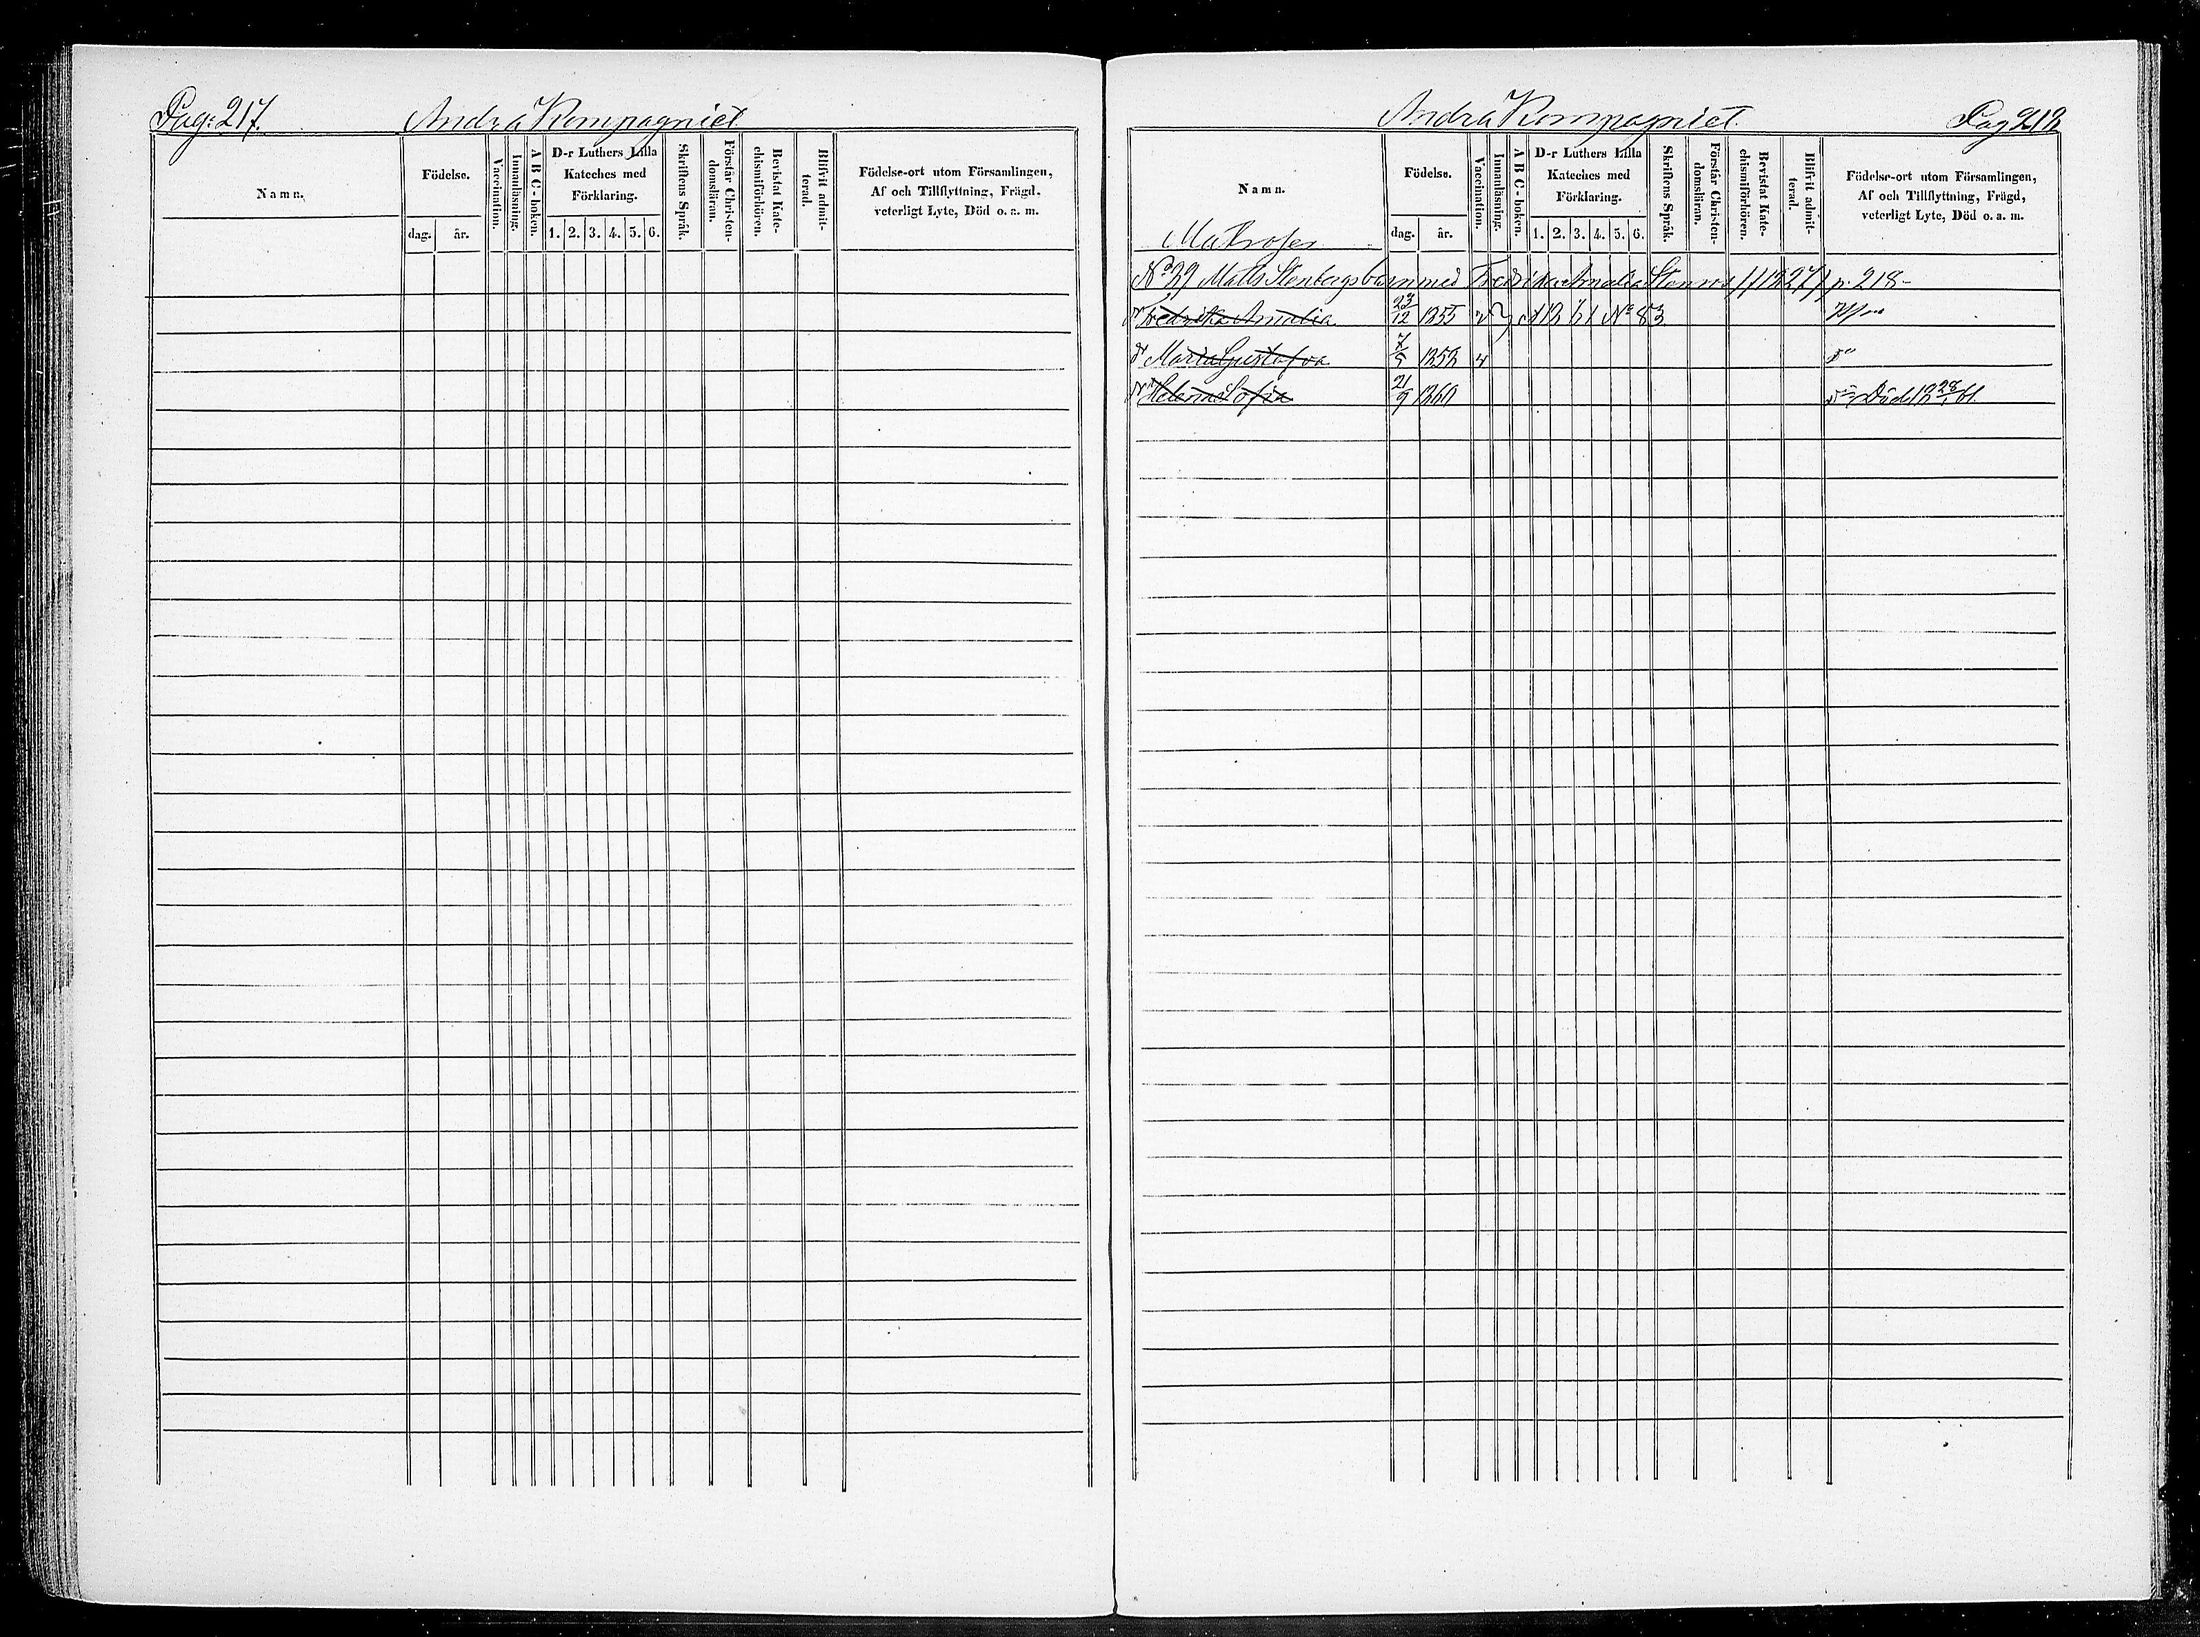 Pag: 217.
Andra Kompagniet
Namn.
Födelse.
dag. år.
Vaccination.
Innanläsning.
A B C-boken.
D-r Luthers Lilla
Kateches med
Förklaring.
1. 2. 3. 4. 5. 6.
Skriftens Språk.
Förstår Christen-
domsläran.
Bevistat Kate-
chismiförhören.
Blifvit admit-
terad.
Födelse-ort utom Församlingen,
Af och Tillflyttning, Frägd,
veterligt Lyte, Död o. a. m.
Andra Kompagniet.
Pag 218
Namn.
Matroser
Födelse.
dag. år.
Vaccination.
Innanläsning.
A B C-boken.
D-r Luthers Lilla
Kateches med
Förklaring.
1. 2. 3. 4. 5. 6.
Skriftens Språk.
Förstår Christen-
domsläran.
Bevistat Kate-
chismiförhören.
Blifvit admit-
terad.
Födelse-ort utom Församlingen,
Af och Tillflyttning, Frägd,
veterligt Lyte, Död o. a. m.
No 39 Matts Stenbergs barn med Fredrika Amalia Stenros p. 218
Fredrika Amalia 23/12 1855 v No 83
Maria Gustafva 7/5 1858 v
Helena Sofia 21/9 1860 Död 18 28/1 61.